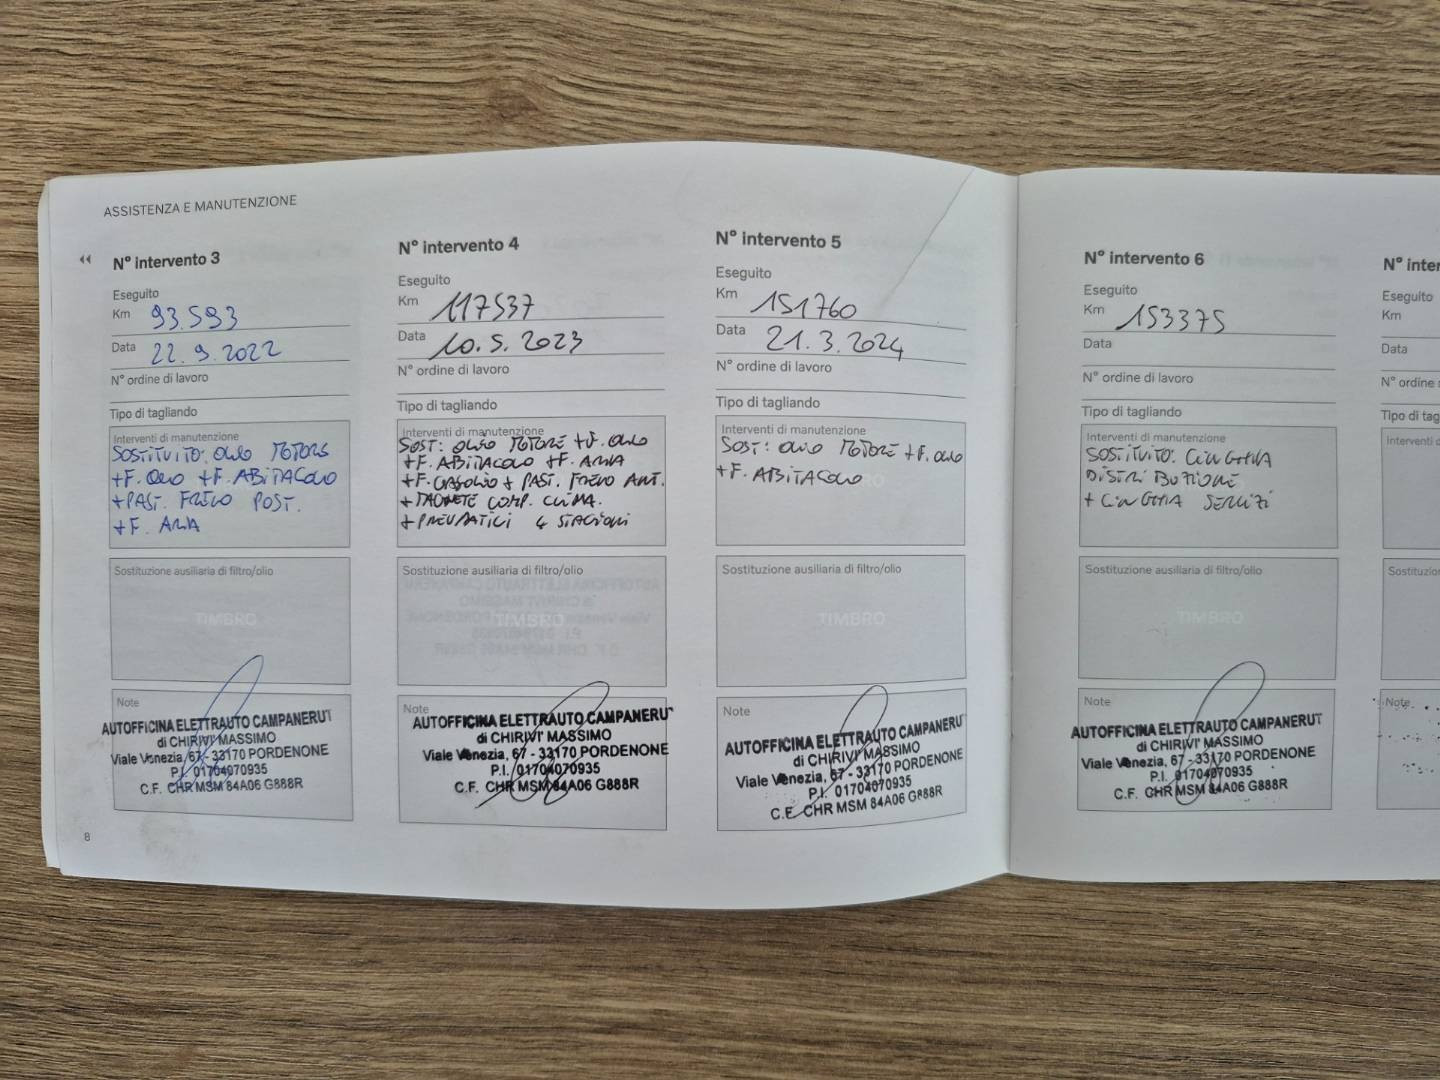 ASSISTENZA E MANUTENZIONE
N° intervento 3
Eseguito
Km 93.593
Data 22.9.2022
N° ordine di lavoro
Tipo di tagliando
Interventi di manutenzione
SOSTITUITO: OLIO MOTORE
+F. OLIO +F. ABITACOLO
+PAST. FRENO POST.
+F. ARIA
Sostituzione ausiliaria di filtro/olio
TIMBRO
Note
AUTOFFICINA ELETTRAUTO CAMPANERUT
di CHIRIVI' MASSIMO
Viale Venezia, 67 - 33170 PORDENONE
P.I. 01704070935
C.F. CHR MSM 84A06 G888R
8
N° intervento 4
Eseguito
Km 117537
Data 10.5.2023
N° ordine di lavoro
Tipo di tagliando
Interventi di manutenzione
SOST: OLIO MOTORE +F. OLIO
+F. ABITACOLO +F. ARIA
+F. GASOLIO + PAST. FRENO ANT.
+ COMP. CLIMA.
+PNEUMATICI 4 STAGIONI
Sostituzione ausiliaria di filtro/olio
TIMBRO
Note
AUTOFFICINA ELETTRAUTO CAMPANERUT
di CHIRIVI' MASSIMO
Viale Venezia, 67 - 33170 PORDENONE
P.I. 01704070935
C.F. CHR MSM 84A06 G888R
N° intervento 5
Eseguito
Km 151760
Data 21.3.2024
N° ordine di lavoro
Tipo di tagliando
Interventi di manutenzione
SOST: OLIO MOTORE +F. OLIO
+F. ABITACOLO
Sostituzione ausiliaria di filtro/olio
TIMBRO
Note
AUTOFFICINA ELETTRAUTO CAMPANERUT
di CHIRIVI' MASSIMO
Viale Venezia, 67 - 33170 PORDENONE
P.I. 01704070935
C.F. CHR MSM 84A06 G888R
N° intervento 6
Eseguito
Km 153375
Data
N° ordine di lavoro
Tipo di tagliando
Interventi di manutenzione
SOSTITUITO: CINGHIA
DISTRIBUZIONE
+ CINGHIA SERVIZI
Sostituzione ausiliaria di filtro/olio
TIMBRO
Note
AUTOFFICINA ELETTRAUTO CAMPANERUT
di CHIRIVI' MASSIMO
Viale Venezia, 67 - 33170 PORDENONE
P.I. 01704070935
C.F. CHR MSM 84A06 G888R
N° inter
Eseguito
Km
Data
N° ordine
Tipo di tag
Interventi
Sostituzion
Note